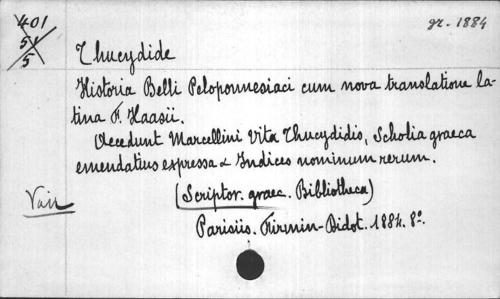 401
51
5
gr. 1884
Thucydide
Historia Belli Peloponnesiaci cum nova translatione la-
tina F. Haasii.
Accedunt Marcellini Vita Thucydidis, Scholia graeca
emendatius expressa & Indices nominum rerum.
Voir
(Scriptor. graec. Bibliotheca)
Parisiis. Firmin-Didot. 1884. 8°.